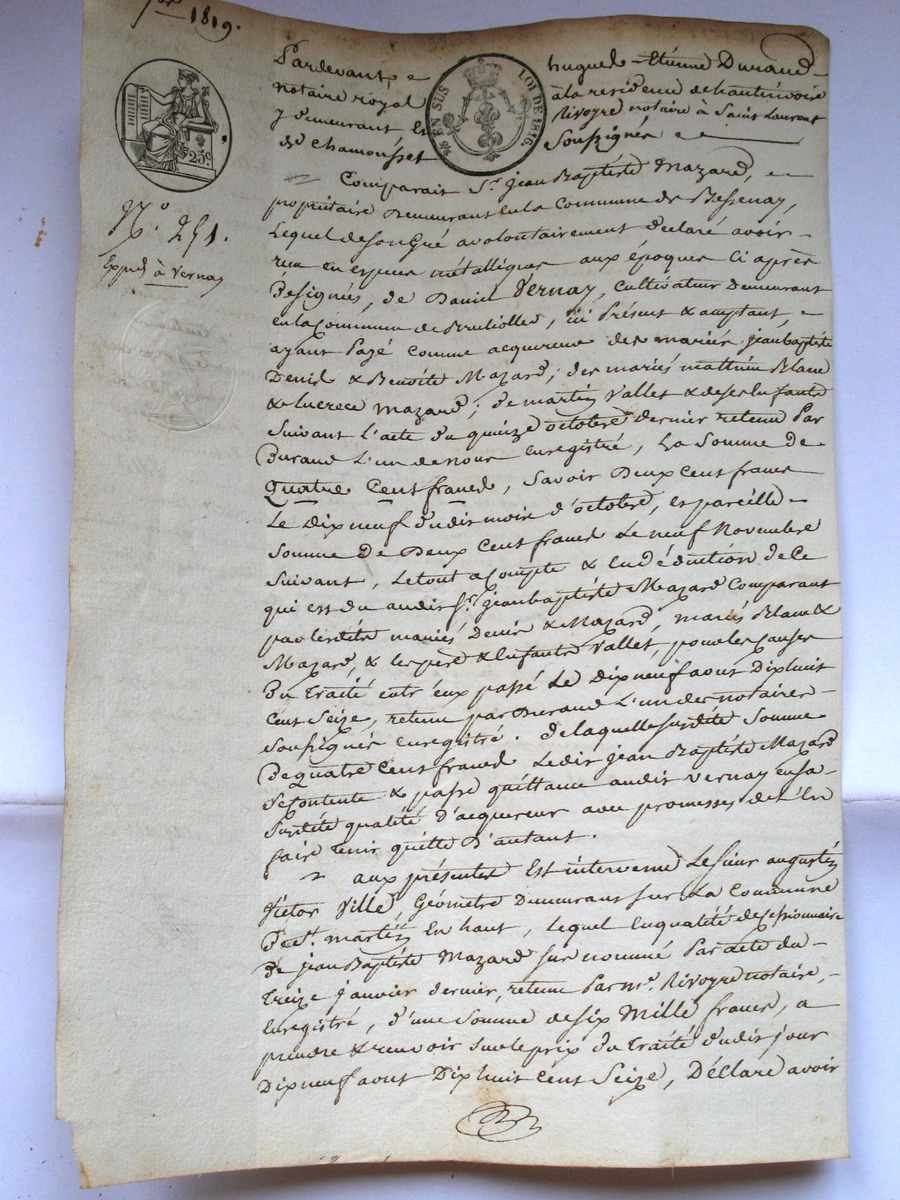 1819.
25c.
⅒ EN SUS LOI DE 1816.
N.° 251.
Expéd à Vernay
Pardevant hugues Etienne Durand
notaire royal à la résidence de hauterivoire
y demeurant Et Rivoyre notaire à Saint Laurent
de Chamousset Soussignés
Comparait S.r jean Baptiste Mazard,
propriétaire Demeurant en la Commune de Bessenay,
Lequel de son Gré a volontairement déclaré avoir
reçu en espèces métalliques aux époques ci après
Désignés, de Daniel Vernay, cultivateur demeurant
en la Commune de Brullioles, ici Présent & acceptant,
ayant Payé comme acquereur des mariés jean baptiste
Denis & Benoite Mazard; des mariés mathieu Blanc
& lucrece Mazard; de martin Vallet & de ses Enfants
Suivant l'acte du quinze octobre dernier retenu Par
Durand L'un de nous Enregistré, La Somme de
Quatre Cent francs, Savoir Deux Cent francs
Le Dix neuf dudit mois d'octobre, et pareille
Somme de Deux Cent francs Le neuf Novembre
Suivant, Le tout acompte & En déduction de Ce
qui est du audit S.r jean baptiste Mazard Comparant
par lesdits mariés denis & Mazard, mariés Blanc &
Mazard, & les père & Enfants Vallet, pour les Causes
Du Traité entr'eux passé Le Dix neuf aout Dix huit
Cent Seize, retenu par Durand L'un des notaires
soussignés Enregistré. De laquelle susdite Somme
De quatre Cent francs Ledit jean Baptiste Mazard
Se Contente & passe quittance audit Vernay en sa
Susdite qualité d'acquereur avec promesse de l'En
faire tenir quitte D'autant.
aux présentes Est intervenu Le Sieur augustin
Victor Ville Géomètre Demeurant sur La Commune
De St. martin En haut, lequel En qualité de Cessionnaire
de jean Baptiste Mazard sus nommé Par acte du
Treize janvier dernier, retenu Par m.e Rivoyre notaire,
Enregistré, d'une Somme de Six Mille francs, a
prendre & recevoir sur le prix du Traité dudit jour
Dix neuf aout Dix huit Cent Seize, Déclare avoir